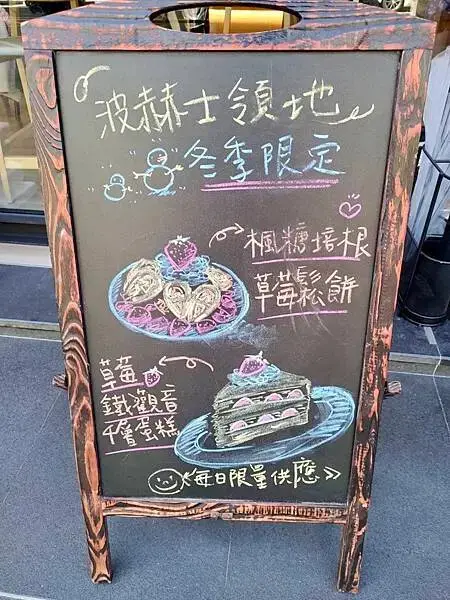 波赫士領地
冬季限定
楓糖培根
草莓鬆餅
草莓
鐵觀音
千層蛋糕
每日限量供應